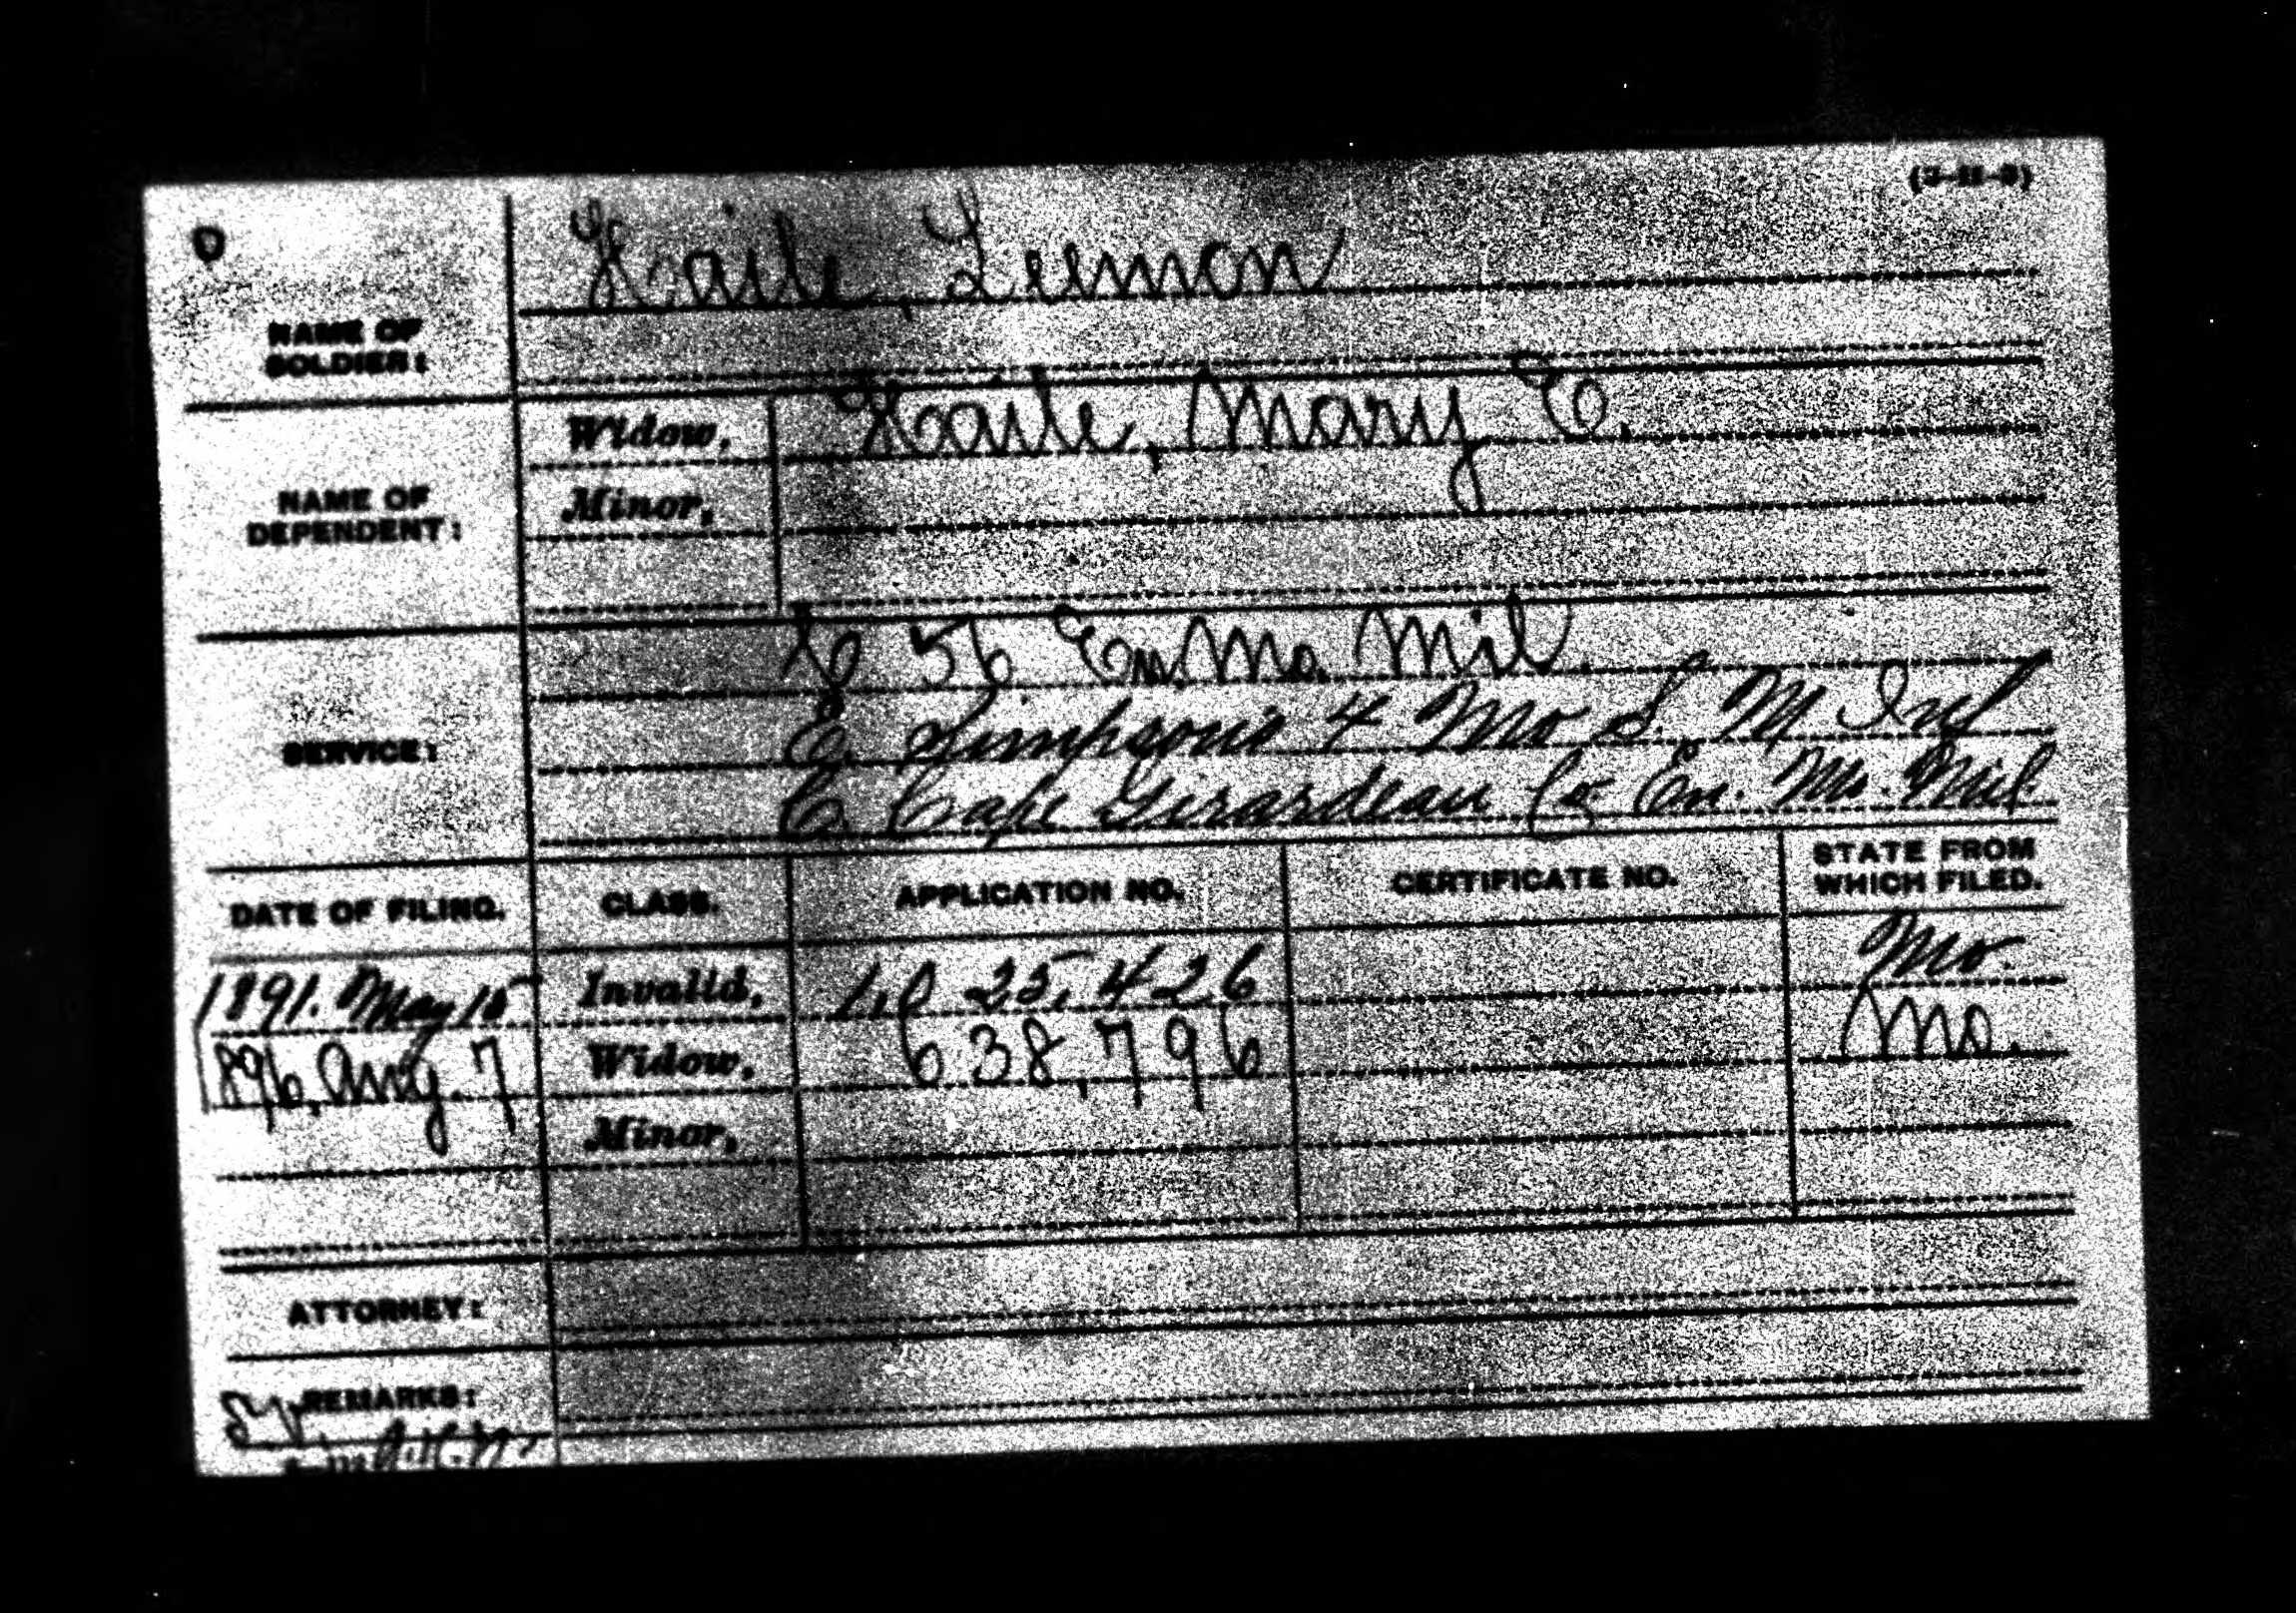 O
(3-11-3)
Haile, Leemon
NAME OF
SOLDIER:
Widow, Haile, Mary E.
NAME OF
DEPENDENT:
Minor,
56 En. Mo. Mil.
SERVICE:
E. Simpson's 4 Mo S. M. Inf
C. Cape Girardeau Co En. Mo. Mil.
DATE OF FILING. CLASS. APPLICATION NO. CERTIFICATE NO. STATE FROM
WHICH FILED.
1891. May 15 Invalid, 1,025,426 Mo.
1896, Aug. 7 Widow, 638,796 Mo.
Minor,
ATTORNEY:
REMARKS: